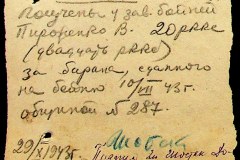 Получены у зав. бойней
Пироженко В. 20 ркке
(двадцать ркке)
за барана, сданного
на бойню 10/VIII 43 г.
общиной № 287.
29/X 1943 г.